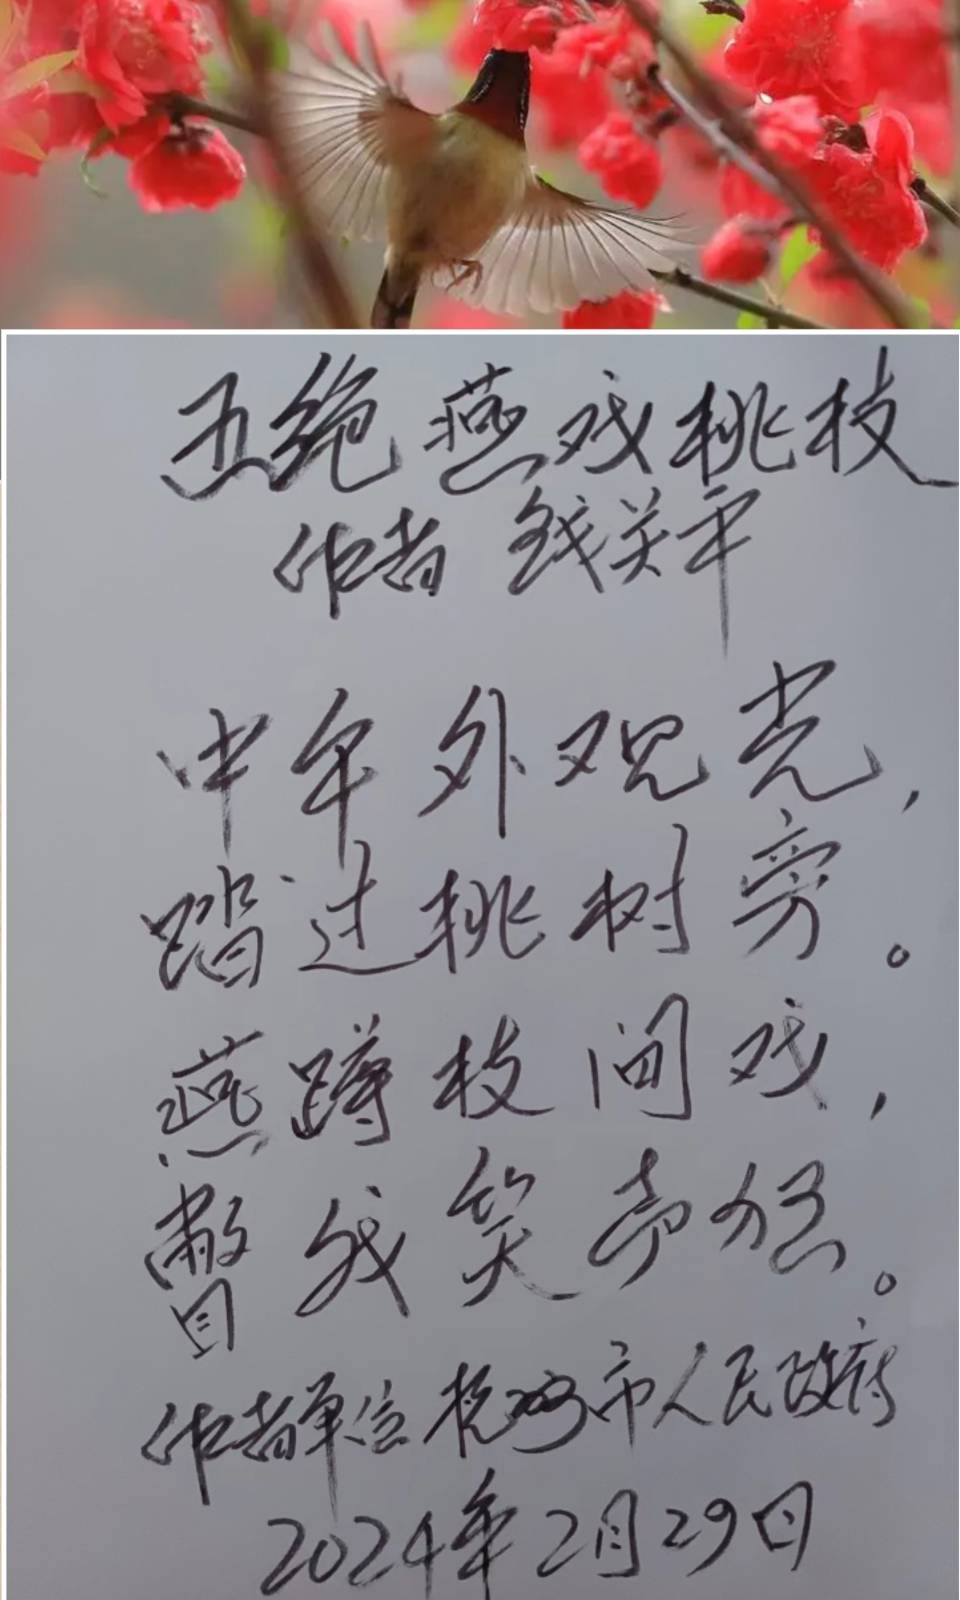 五绝 燕戏桃枝
作者 钱关平
中午外观光，
踏过桃树旁。
燕蹲枝间戏，
瞥我笑声扬。
作者单位杭州市人民政府
2024年2月29日